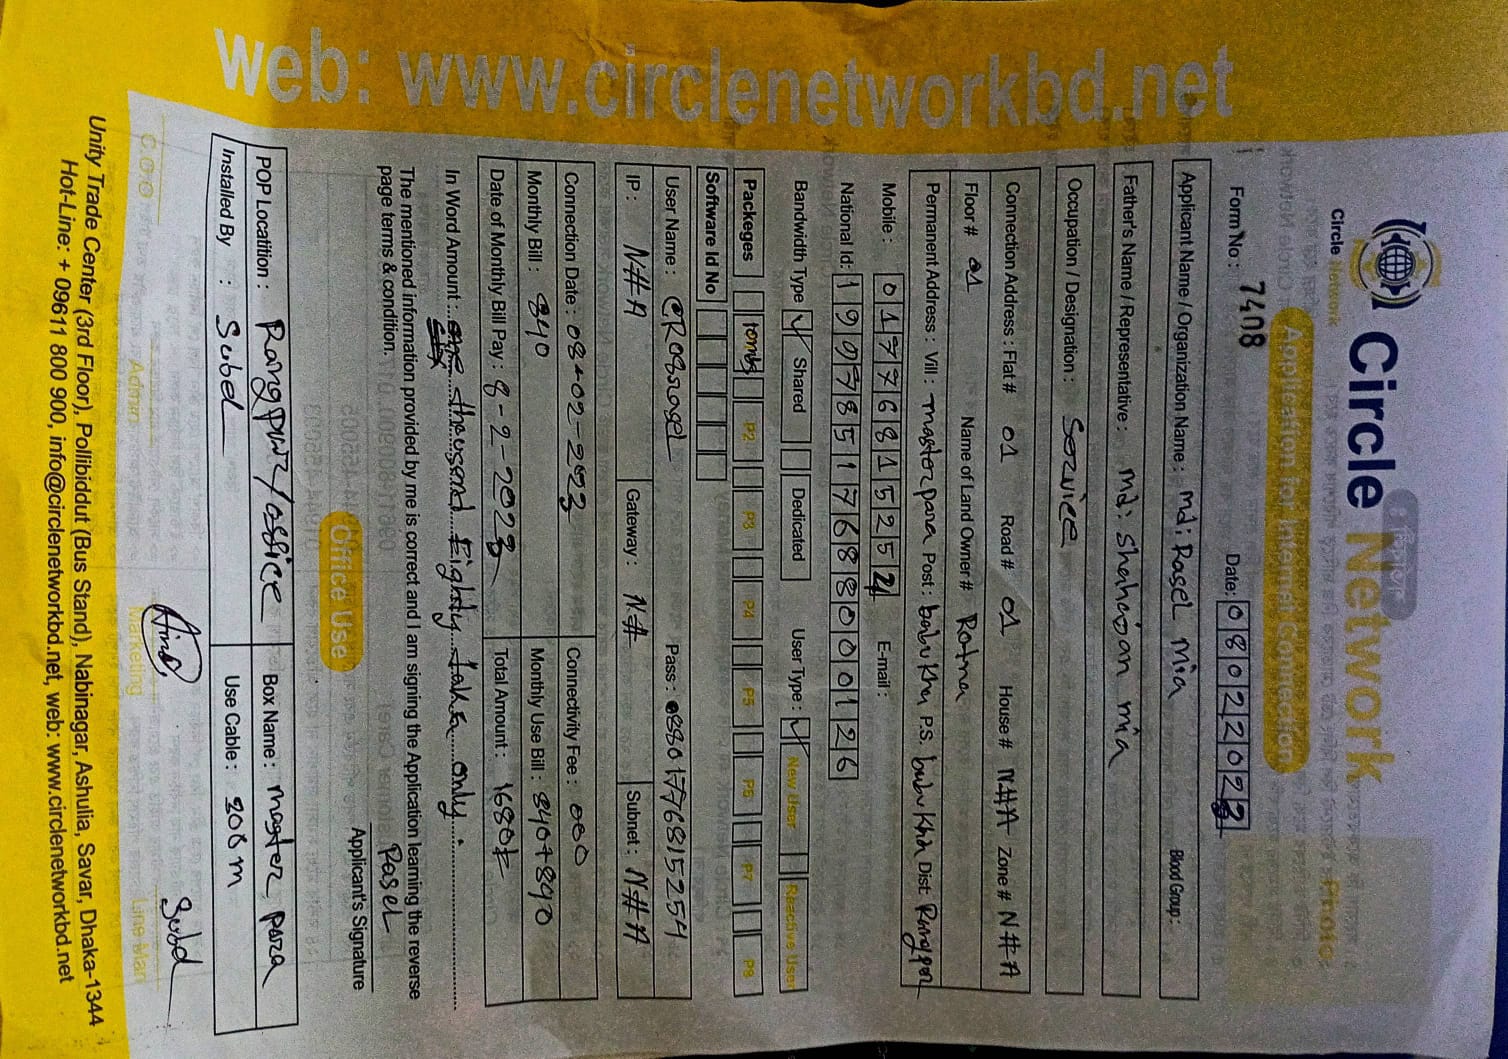 Circle Network
Circle Network
Photo
Application for Internet Connection
Form No : 7408 Date: 08022023
Applicant Name / Organization Name : md: Rasel mia Blood Group :
Father's Name / Representative : md: shahejan mia
Occupation / Designation : Service
Connection Address : Flat # 01 Road # 01 House # N##A Zone # N##A
Floor # 01 Name of Land Owner # Ratna
Permanent Address : Vill : master para Post : babu Kha P.S. babu Kha Dist. Rangpur
Mobile : 01776815254 E-mail :
National Id: 19978517688000126
Bandwidth Type Shared Dedicated User Type : New User Reactive User
Packeges 10mbs P2 P3 P4 P5 P6 P7 P8
Software Id No
User Name : Pass : 8801776815254
IP : N##A Gateway : N## Subnet : N##A
Connection Date : 08-02-2023 Connectivity Fee : 000
Monthly Bill : 840 Monthly Use Bill : 840+840
Date of Monthly Bill Pay : 8-2-2023 Total Amount : 1680
In Word Amount : theusand Eighty takta only
The mentioned information provided by me is correct and I am signing the Application learning the reverse
page terms & condition.
Rasel
Applicant's Signature
Office Use
POP Locatition : Rangpur/office Box Name : master, para
Installed By : Subel Use Cable : 300m
C.O.O Admin Marketing Line Man
Unity Trade Center (3rd Floor), Pollibiddut (Bus Stand), Nabinagar, Ashulia, Savar, Dhaka-1344
Hot-Line: + 09611 800 900, info@circlenetworkbd.net, web: www.circlenetworkbd.net
web: www.circlenetworkbd.net